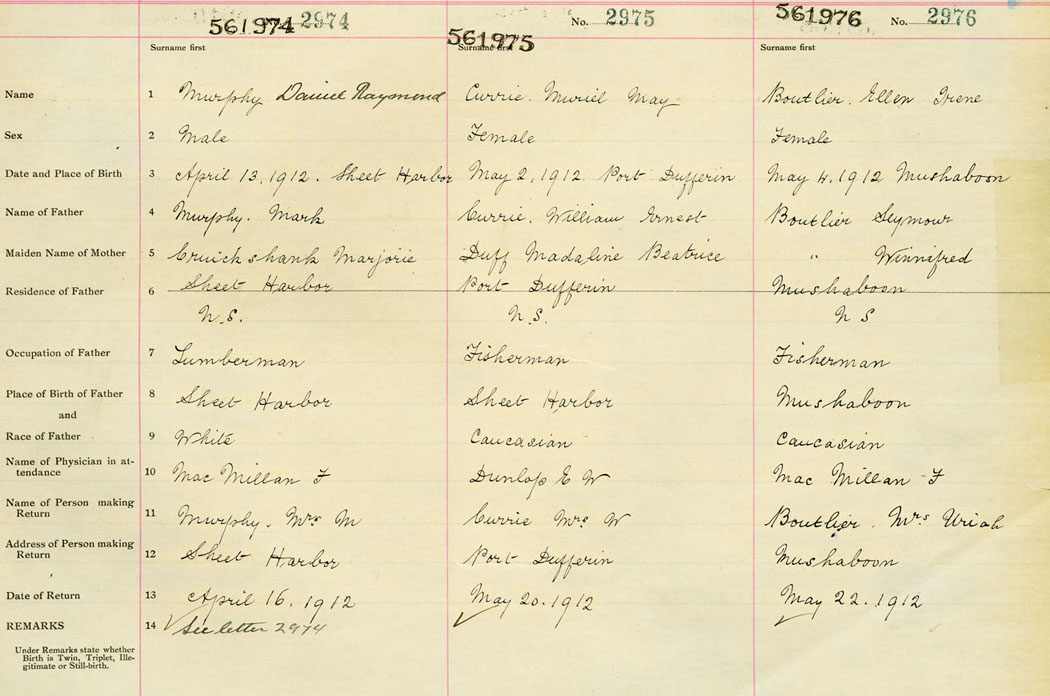 561974 2974 No. 2975 561976 No. 2976
Surname first 561975 Surname first Surname first
Name 1 Murphy Daniel Raymond Currie. Muriel May Boutlier. Ellen Irene
Sex 2 Male Female Female
Date and Place of Birth 3 April 13, 1912. Sheet Harbor May 2, 1912. Port Dufferin May 4, 1912 Mushaboon
Name of Father 4 Murphy. Mark Currie. William Ernest Boutlier Seymour
Maiden Name of Mother 5 Cruickshank Marjorie Duff Madaline Beatrice " Winnifred
Residence of Father 6 Sheet Harbor Port Dufferin Mushaboon
N.S. N.S. N S
Occupation of Father 7 Lumberman Fisherman Fisherman
Place of Birth of Father 8 Sheet Harbor Sheet Harbor Mushaboon
and
Race of Father 9 White Caucasian Caucasian
Name of Physician in at-
tendance 10 Mac Millan F Dunlop E W Mac Millan F
Name of Person making
Return 11 Murphy. Mrs M Currie Mrs W Boutlier. Mrs Uriah
Address of Person making
Return 12 Sheet Harbor Port Dufferin Mushaboon
Date of Return 13 April 16. 1912 May 20. 1912 May 22. 1912
REMARKS 14 See letter 2974
Under Remarks state whether
Birth is Twin, Triplet, Ille-
gitimate or Still-birth.